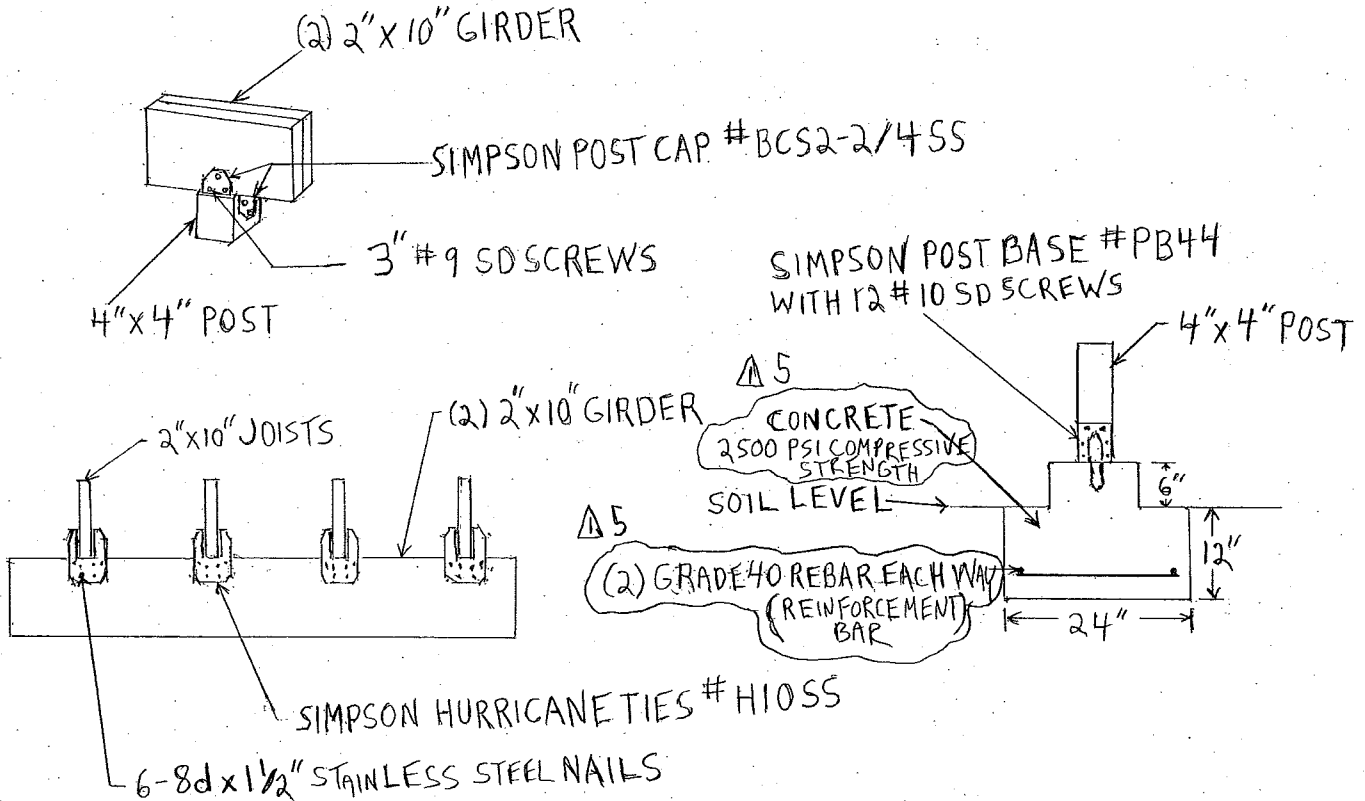 (2) 2"X10" GIRDER
SIMPSON POST CAP #BCS2-2/4 SS
3" #9 SD SCREWS
4"X4" POST
SIMPSON POST BASE #PB44
WITH 12 #10 SD SCREWS
4"X4" POST
2"X10" JOISTS
(2) 2"X10" GIRDER
5
CONCRETE
2500 PSI COMPRESSIVE
STRENGTH
SOIL LEVEL
6"
12"
24"
5
(2) GRADE 40 REBAR EACH WAY
(REINFORCEMENT)
BAR
SIMPSON HURRICANE TIES #H10SS
6-8d x 1 1/2" STAINLESS STEEL NAILS